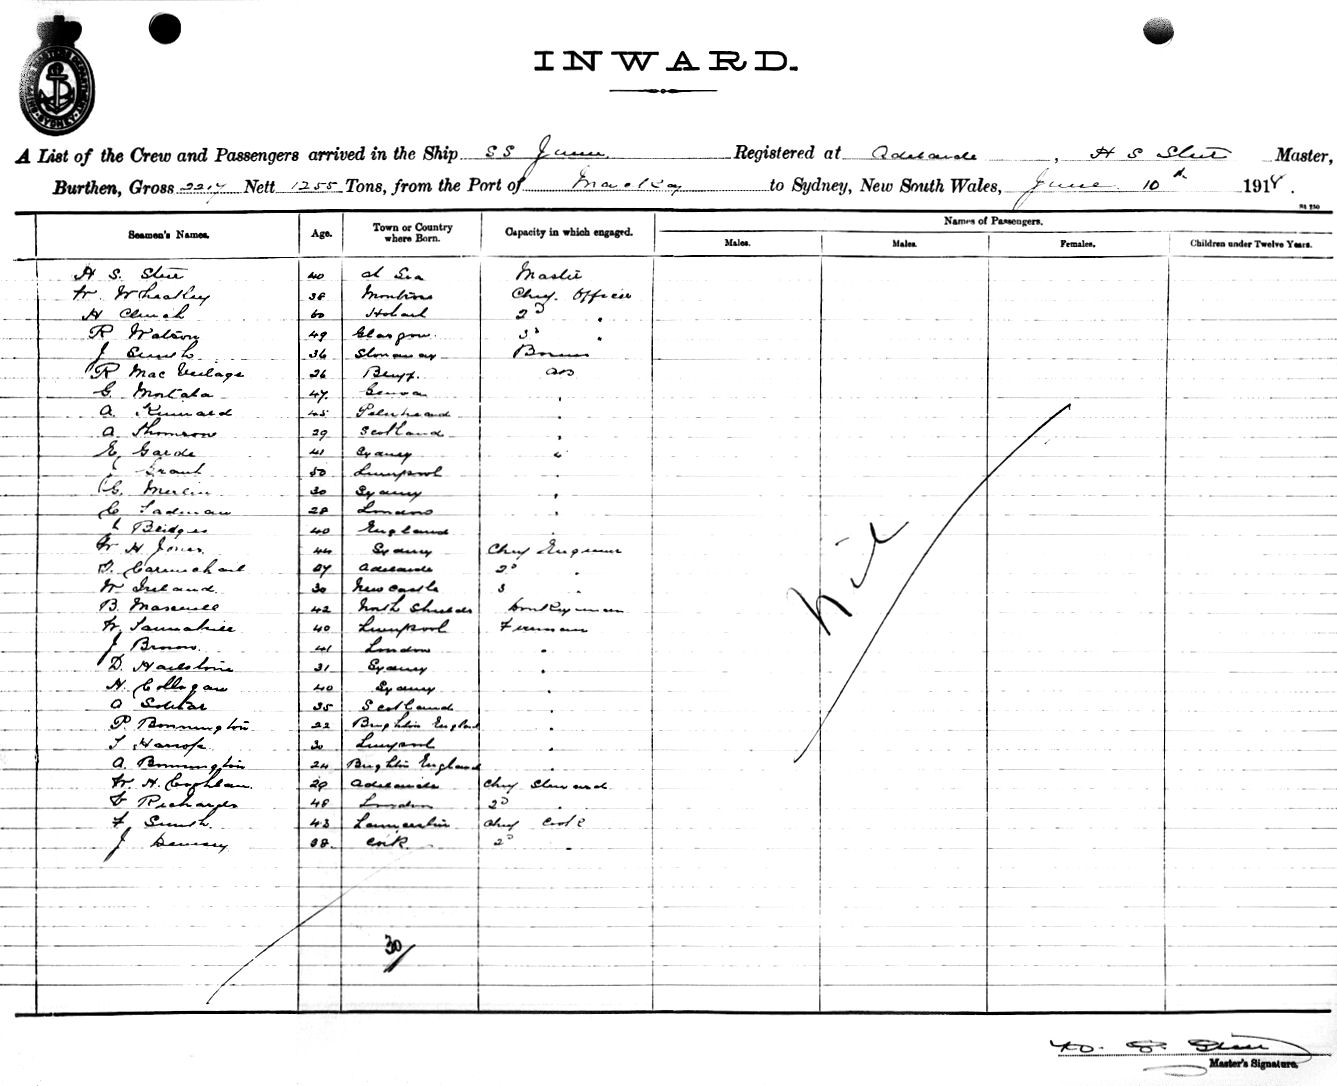 SHIPPING MASTER'S DEPARTMENT SYDNEY
INWARD.
A List of the Crew and Passengers arrived in the Ship SS Junee Registered at Adelaide, H S Master,
Burthen, Gross 2217 Nett 1255 Tons, from the Port of Mackay to Sydney, New South Wales, June 10th 1914.
Seamen's Names. Age. Town or Country where Born. Capacity in which engaged. Names of Passengers.
Males. Males. Females. Children under Twelve Years.
H S 40 at Sea Master
W Wheatley 38 Montrose Chief Officer
H Church 60 Hobart 2D "
R Watson 49 Glasgow 3D "
J Smith 36 Stornaway Bosun
R Mac 26 Bluff AB
G 47 Genoa "
A Kinnard 45 Peterhead "
A Thomson 29 Scotland "
E Garde 41 Sydney "
J Grant 50 Liverpool "
C 30 Sydney "
C Tadman 28 London "
J Bridges 40 England "
W H Jones 44 Sydney Chief Engineer
D Carmichael 27 Adelaide 2D "
W Ireland 30 Newcastle 3 "
B Maxwell 42 North Shields Donkeyman
W Tannahill 40 Liverpool Fireman
J Brown 41 London "
D Hailstone 31 Sydney "
H Collogan 40 Sydney "
A 35 Scotland "
P Bonnington 22 Brighton England "
T Harrop 30 Liverpool "
A Bonnington 24 Brighton England "
W H Coghlan 29 Adelaide Chief Steward
Richards 48 London 2D "
F Smith 43 Lancashire Chief Cook
J 38 Cork 2D "
Nil
30/
H. S.
Master's Signature.